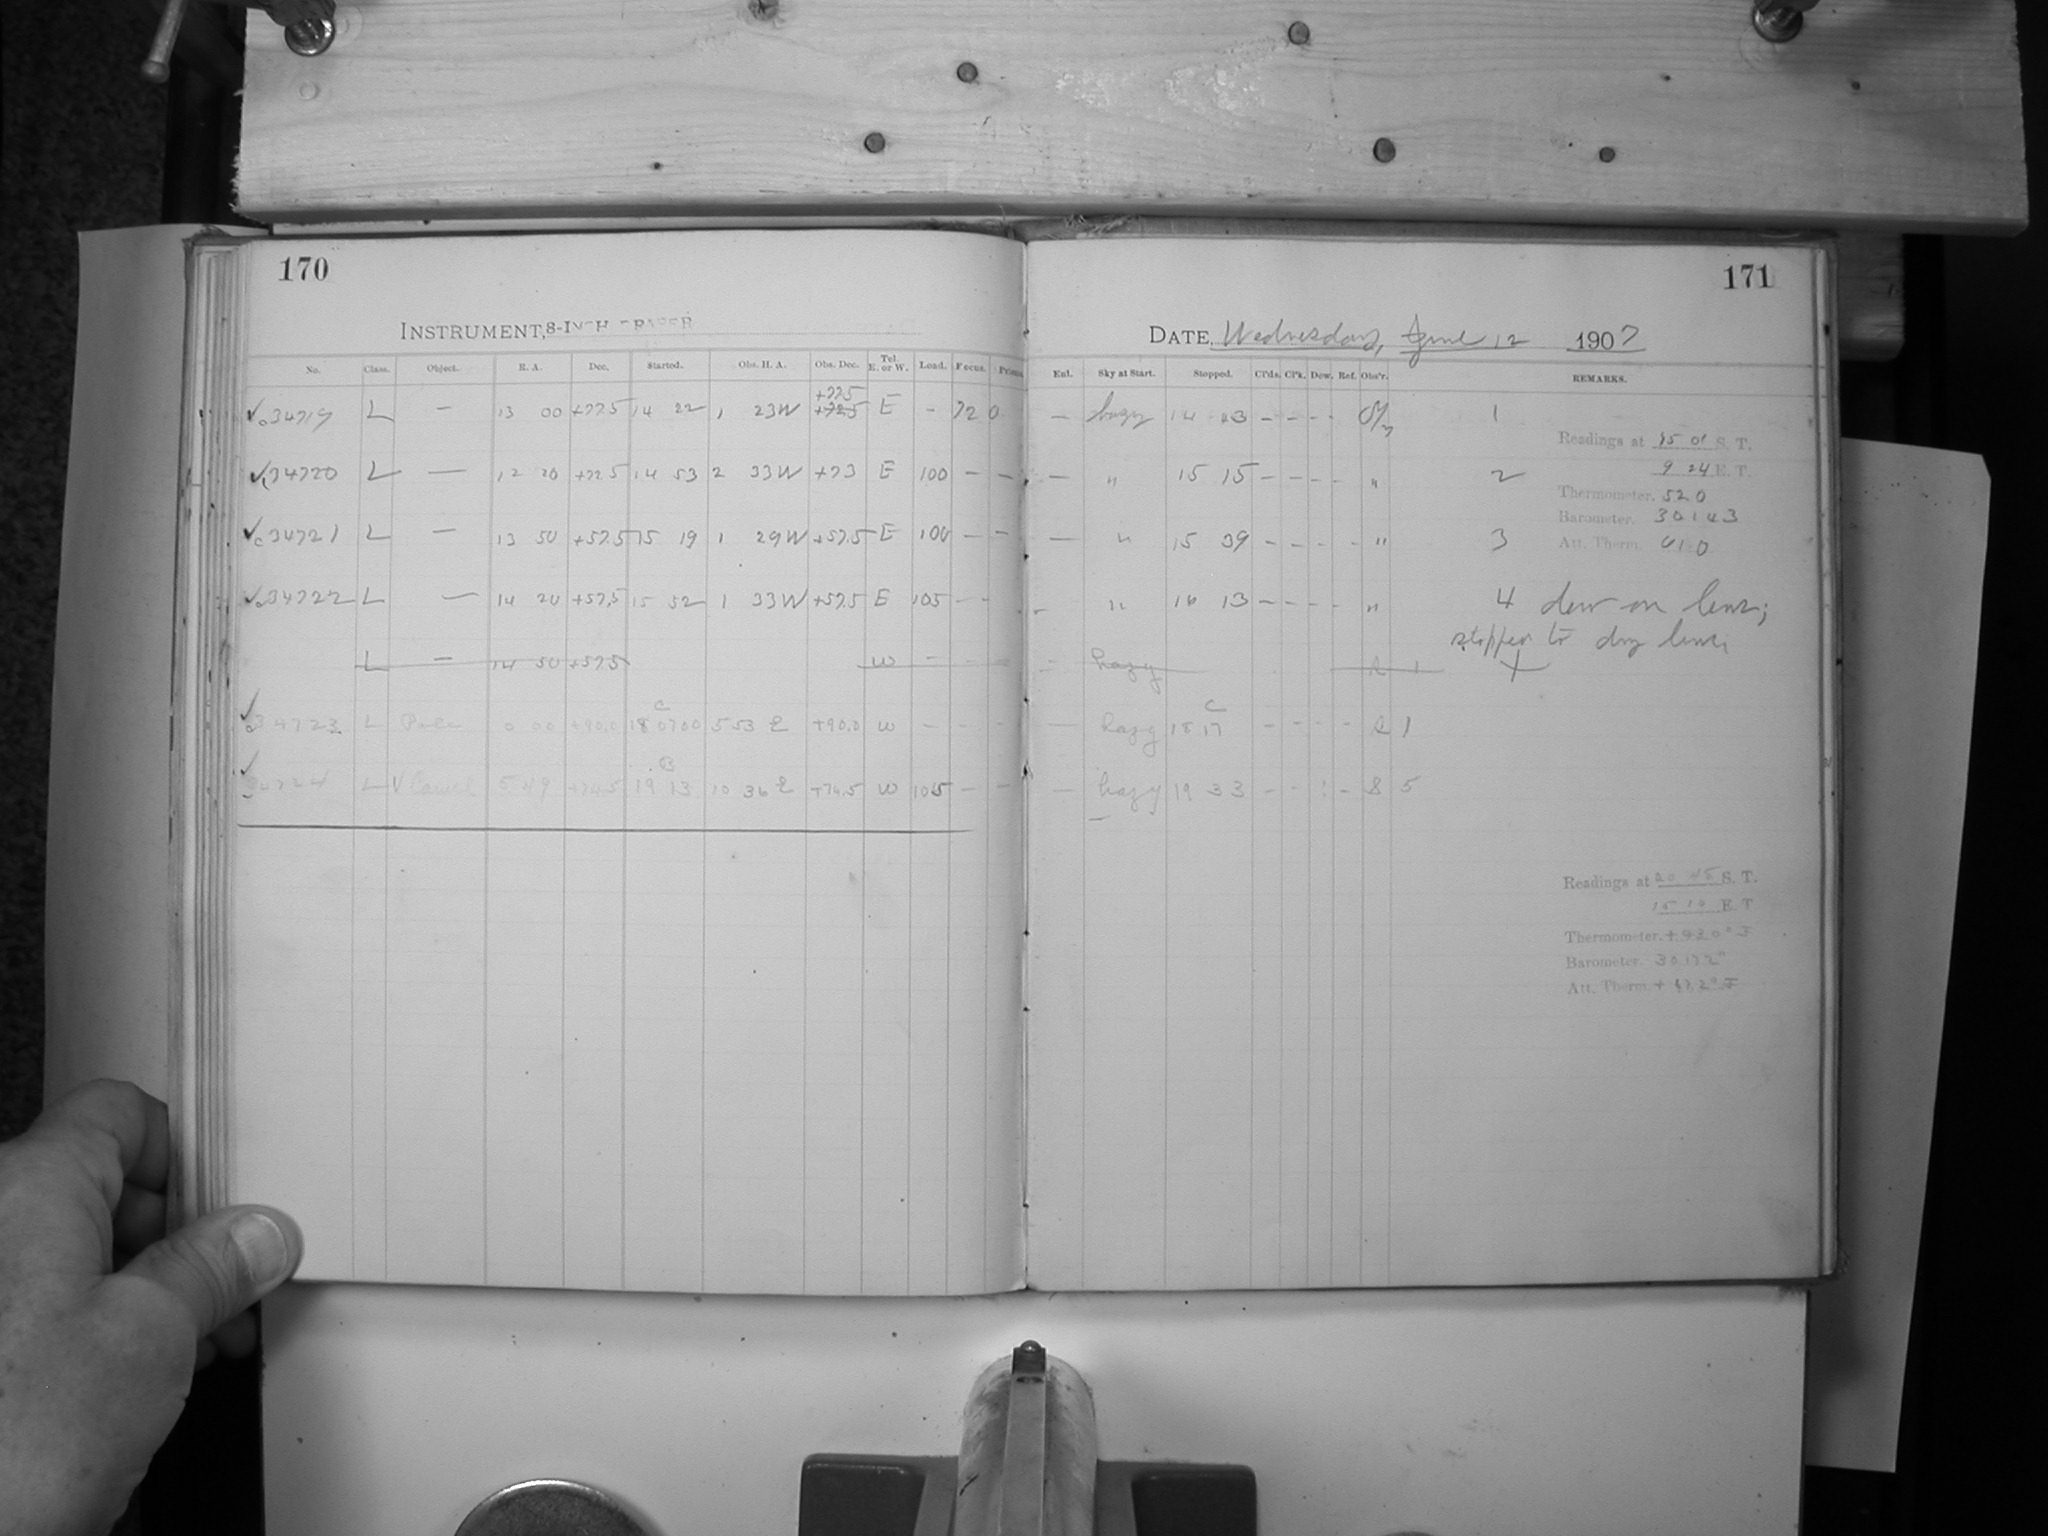 170
INSTRUMENT, 8-INCH DRAPER
No. Class. Object. R. A. Dec. Started. Obs. H. A. Obs. Dec. Tel. E. or W. Load. Focus.
+22.5
34719 L — 13 00 14 22 1 23W E - 720
34720 L — 12 20 +22.5 14 53 2 33W +23 E 100 - -
c34721 L — 13 50 +57.5 15 19 1 29W +57.5 E 100 - -
34722 L — 14 20 +57.5 15 52 1 33W +57.5 E 105 - -
L — 14 50 +57.5 W - - -
34723 L Pole 0 00 +90.0 18 07 00 5 53 E +90.0 W - - -
C
34724 L 5 49 +74.5 19 13 10 36 E +74.5 W 105 - -
B
171
DATE, Wednesday, 12 1907
Enl. Sky at Start. Stopped. Cl'ds. Cl'k. Dew. Ref. Obs'r. REMARKS.
— hazy 14 43 - - - - 1
Readings at 15 01 S. T.
— " 15 15 - - - - " 2
9 24 E. T.
Thermometer. 52 0
Barometer. 30 143
— " 15 39 - - - - " 3
Att. Therm. 61 0
- " 16 13 - - - - " 4 dew on lens;
stopped to dry lens.
- hazy
— hazy 18 17 - - - - 1
C
— hazy 19 33 - - : - 8 5
Readings at 20 45 S. T.
15 10 E. T
Thermometer.
Barometer. 30.172"
Att. Therm.